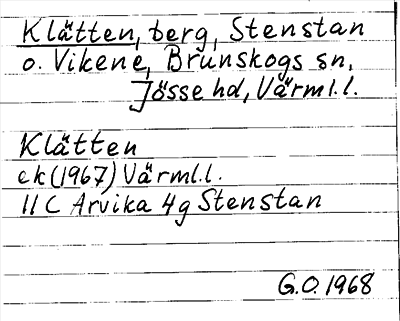 Klätten, berg, Stenstan
o. Vikene, Brunskogs sn,
Jösse hd, Värml.l.
Klätten
ek (1967) Värml.l.
11 C Arvika 4g Stenstan
G.O. 1968